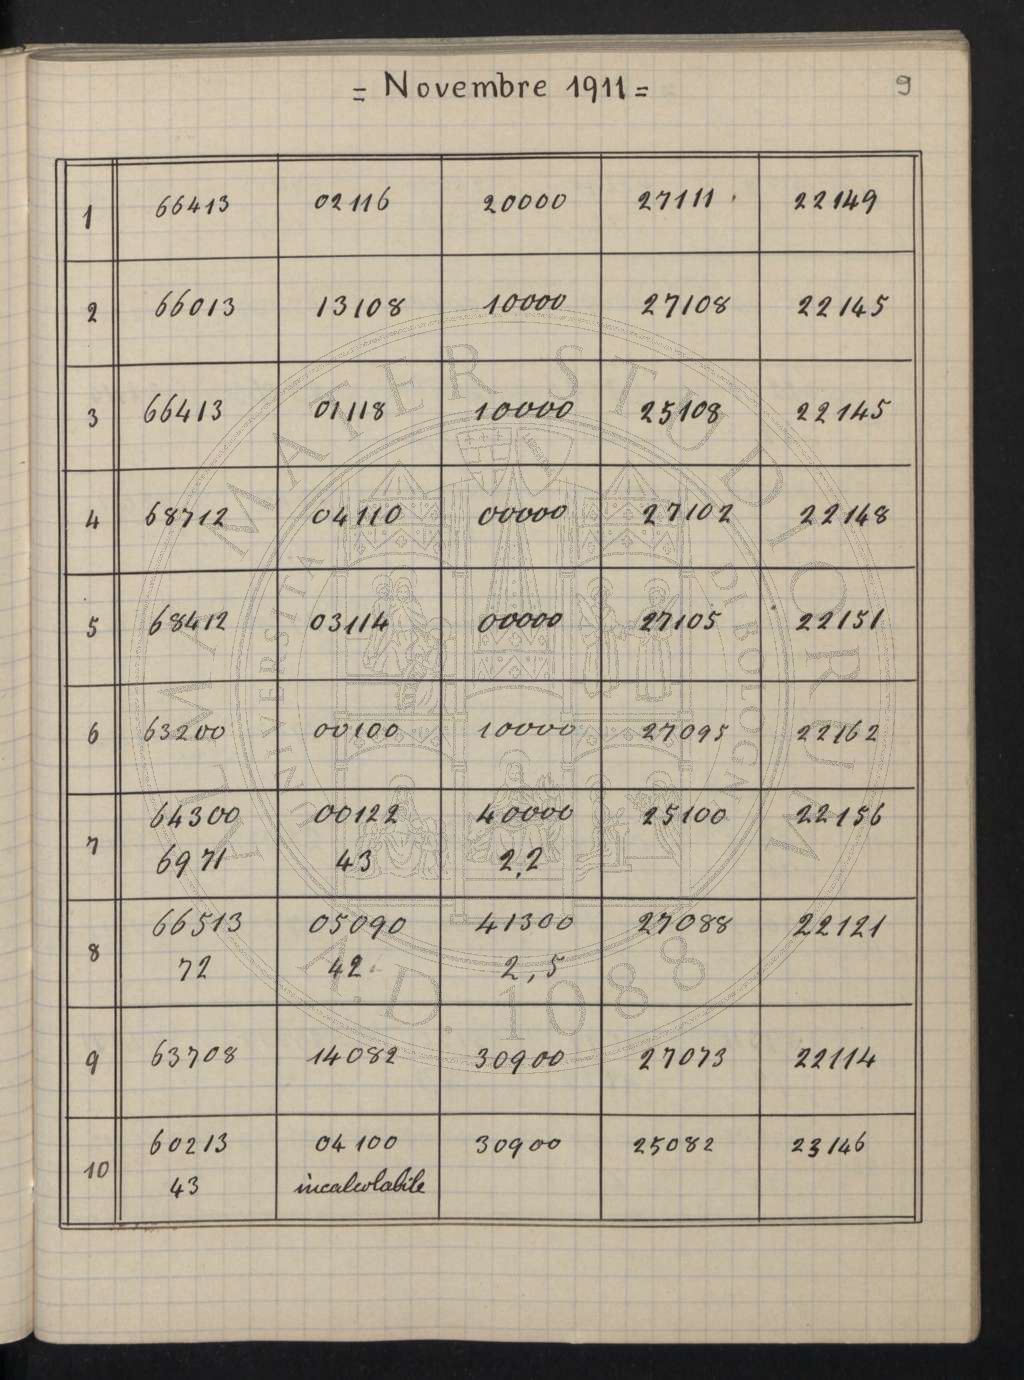 = Novembre 1911 = 9
1 66413 02116 20000 27111 . 22149
2 66013 13108 10000 27108 22145
3 66413 01118 10000 25108 22145
4 68712 04110 00000 27102 22148
5 68412 03114 00000 27105 22151
6 63200 00100 10000 27095 22162
7 64300 00122 40000 25100 22156
6971 43 2,2
8 66513 05090 41300 27088 22121
72 42 2,5
9 63708 14082 30900 27073 22114
10 60213 04100 30900 25082 23146
43 incalcolabile
ALMA MATER STUDIORUM
UNIVERSITÀ DI BOLOGNA
A.D. 1088